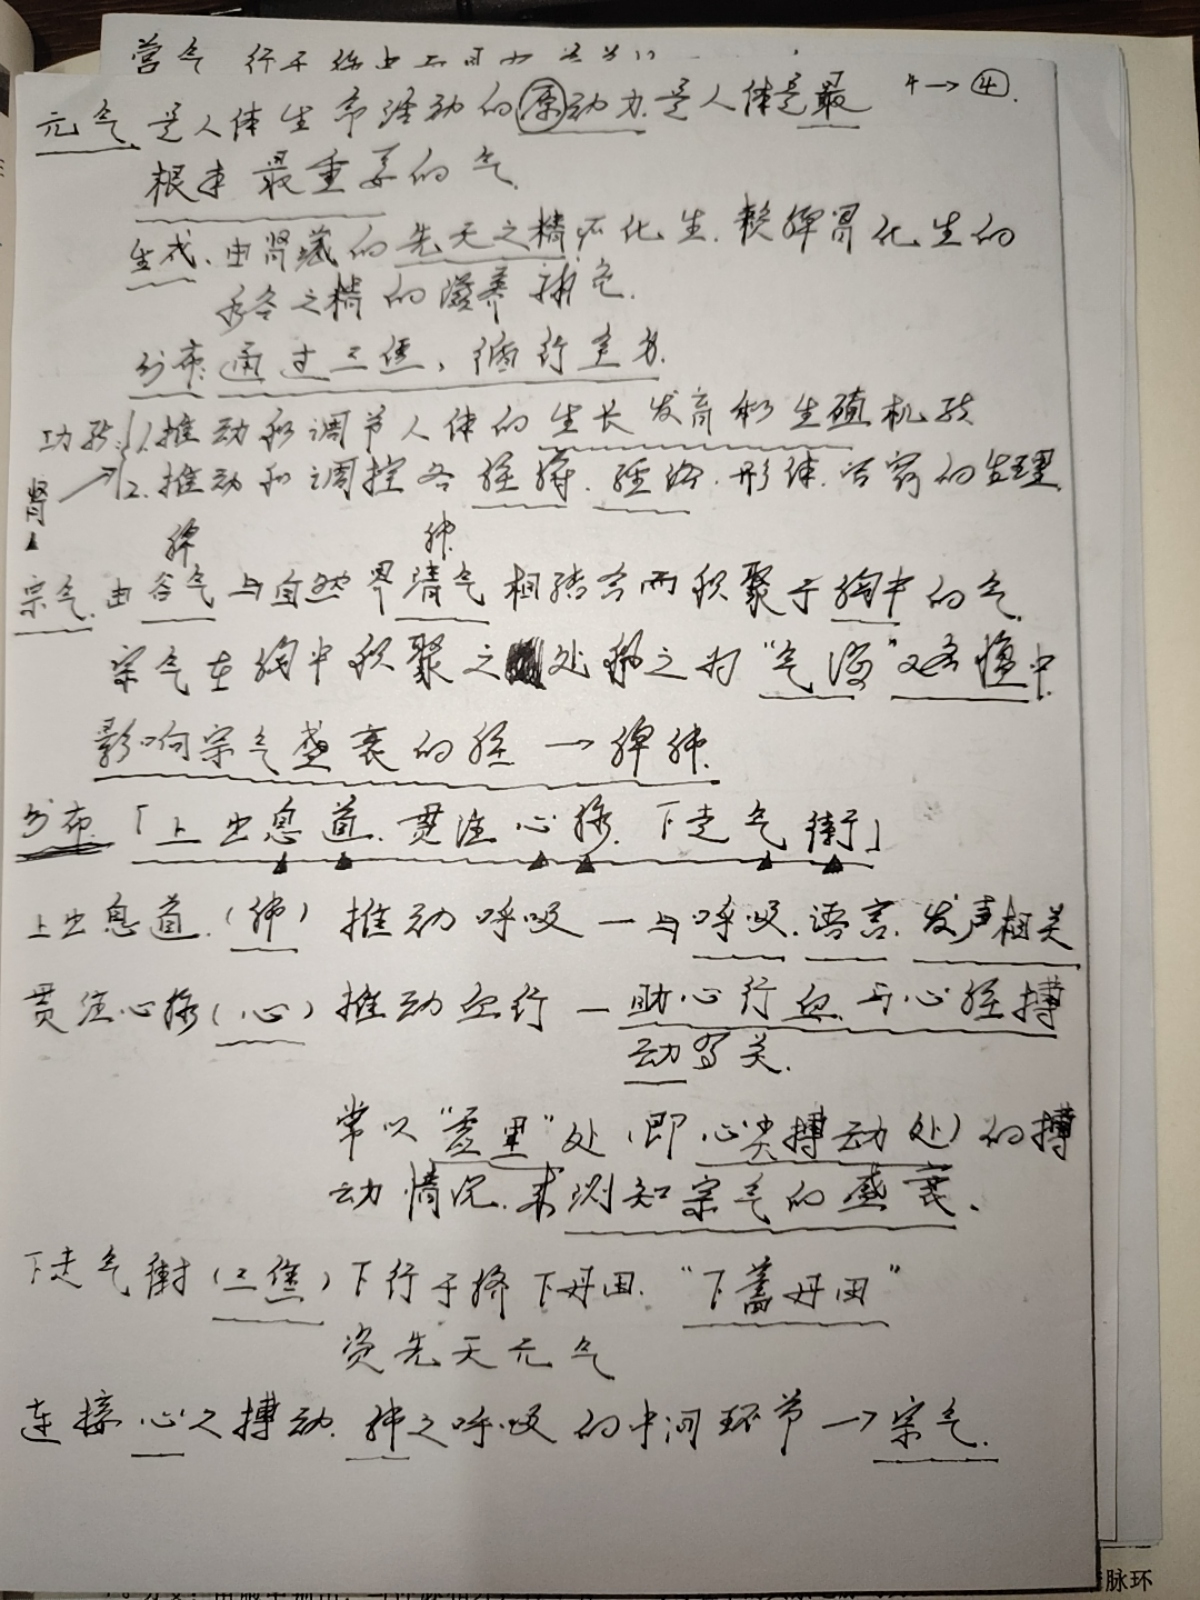 营气 行于脉中
4→④.
元气 是人体生命活动的原动力.是人体是最
根本最重要的气.
生成.由肾藏的先天之精所化生.赖脾胃化生的
水谷之精的滋养补充.
分布:通过三焦,循行全身.
功能:1.推动和调节人体的生长发育和生殖机能
2.推动和调控各脏腑.经络.形体.官窍的生理
肾
脾 肺
宗气.由谷气与自然界清气相结合而积聚于胸中的气.
宗气在胸中积聚之处称之为“气海”又名膻中.
影响宗气盛衰的脏→脾肺.
分布.「上出息道.贯注心脉.下走气街」
上出息道.(肺)推动呼吸—与呼吸.语言.发声相关
贯注心脉(心)推动血行—助心行血.与心脏搏
动有关.
常以“虚里”处(即心尖搏动处)的搏
动情况.来测知宗气的盛衰.
下走气街(三焦)下行于脐下丹田.“下蓄丹田”
资先天元气
连接心之搏动.肺之呼吸的中间环节→宗气.
脉环